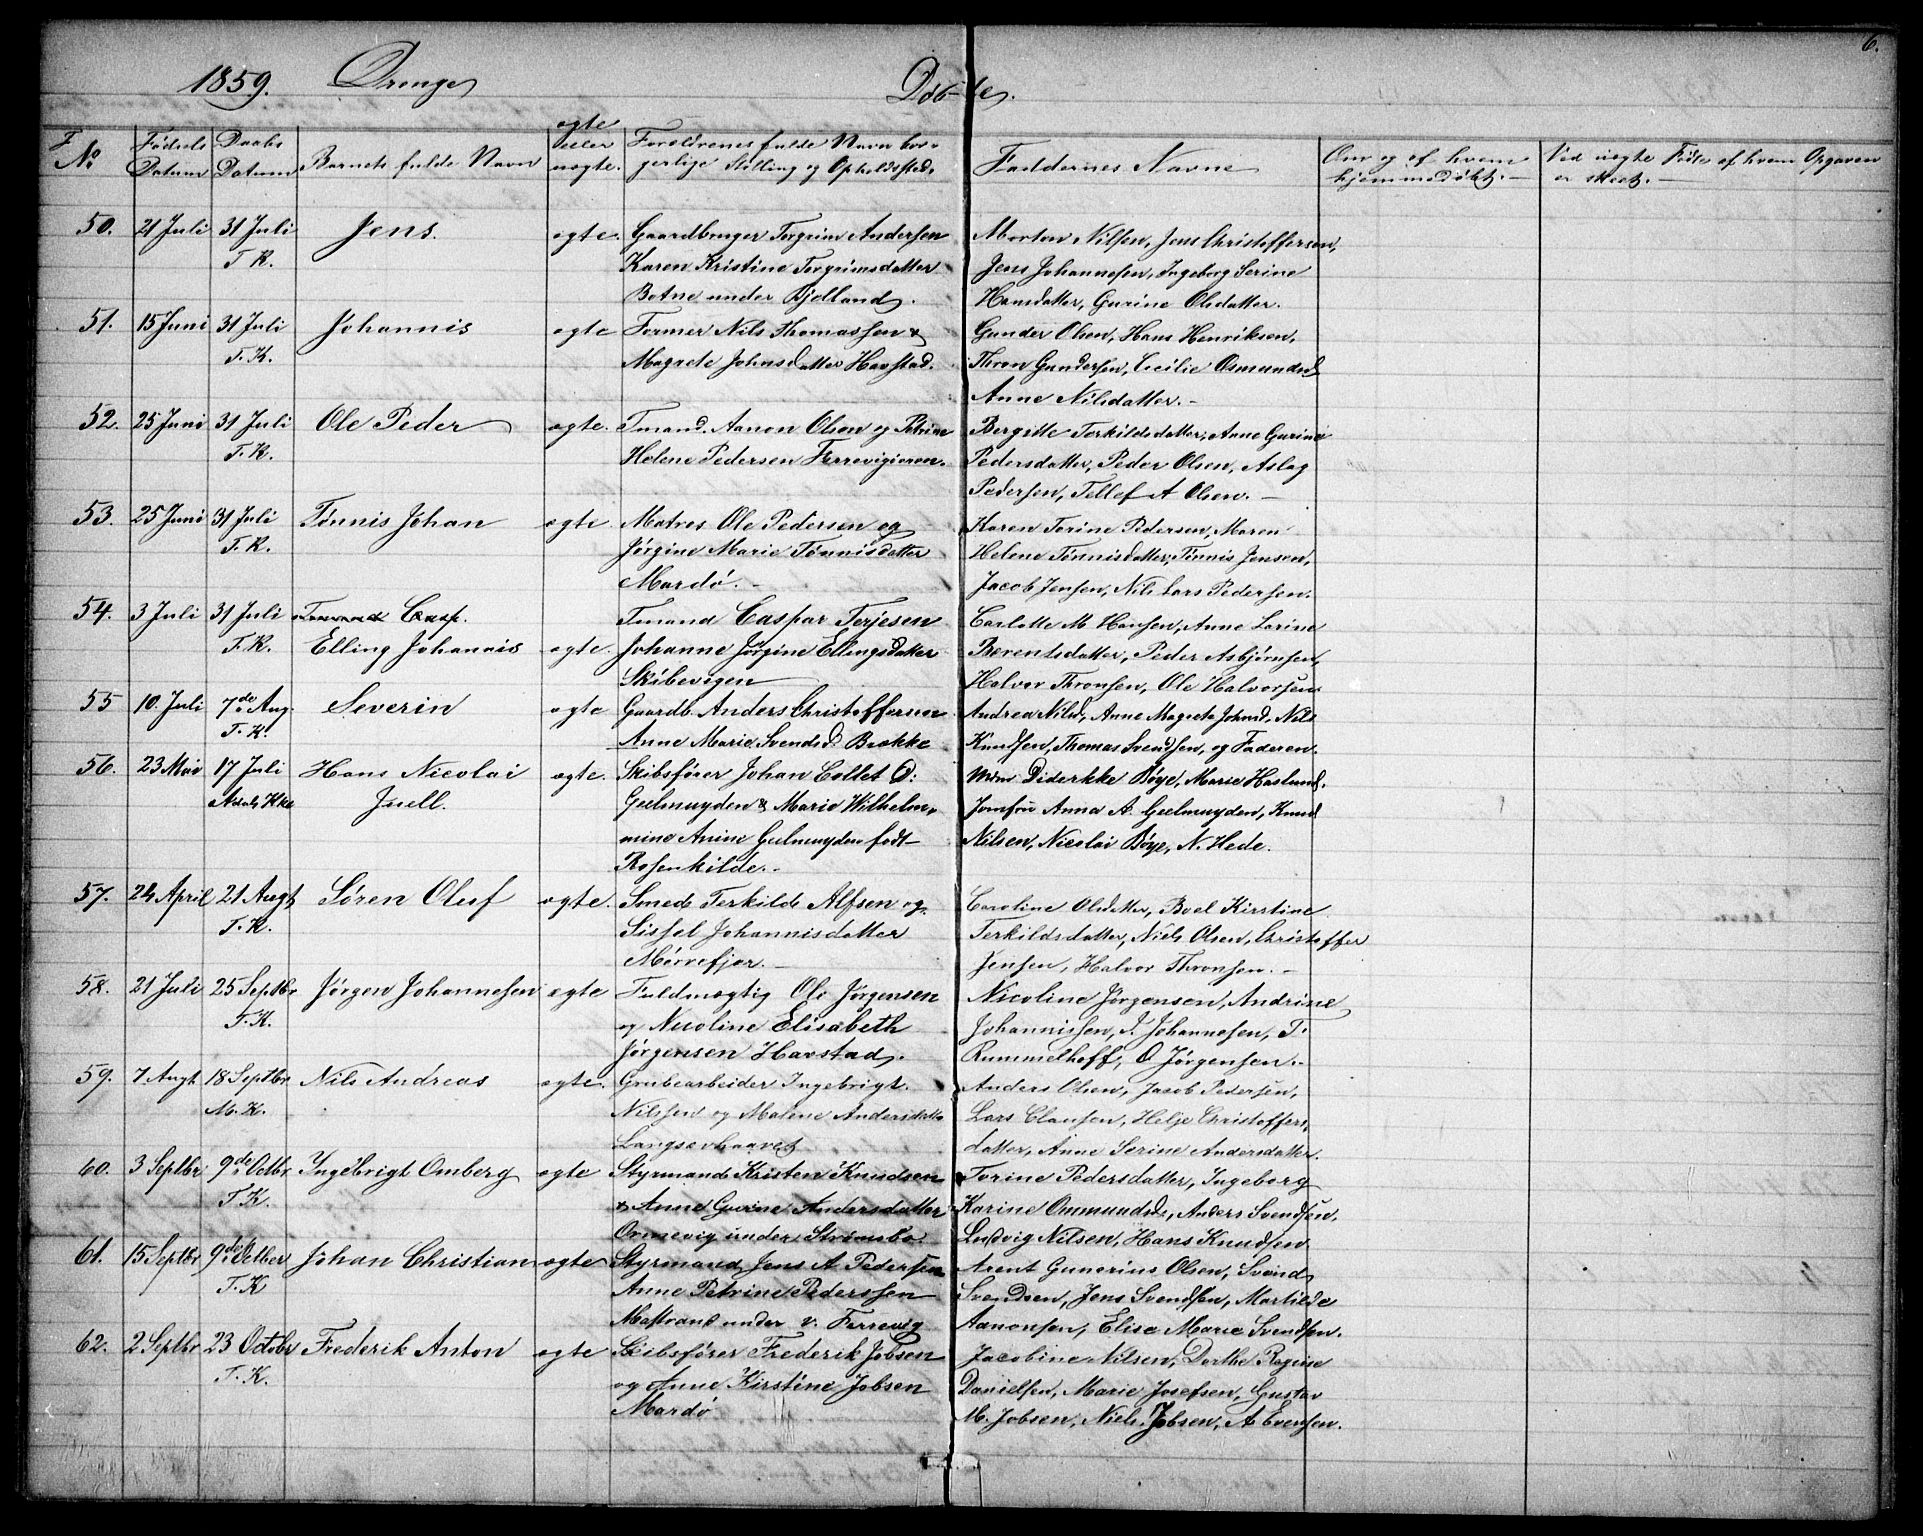 6.
1859. Drenge Døbte.
No Fødsels Datum Daabs Datum Barnets fulde Navn ægte eller uægte. Forældrenes fulde Navn bor- gerlige Stilling og Opholdssted. Faddernes Navne Om og af hvem hjemmedøbt. Ved uægte Fødte af hvem Opgaven er skeet.
50. 21 Juli 31 Juli Jens. ægte. Gaardbruger Torgrim Andersen Morten Nilsen, Jens Christoffersen,
T. K. Karen Kristine Torgrimsdatter Jens Johannesen, Ingeborg Serine
Botne under Bjelland. Hansdatter, Gurine Olsdatter.
51. 15 Juni 31 Juli Johannis ægte Former Nils Thomassen & Gunder Olsen, Hans Henriksen,
T. K. Magrete Johnsdatter Havstad. Thron Gundersen, Cicilie Osmundsd
Anne Nilsdatter.
52. 25 Juni 31 Juli Ole Peder ægte. Tmand. Aanon Olsen og Petrine Bergitte Terkildsdatter, Anne Gurine
T. K. Helene Pedersen Færrevigieren. Pedersdatter, Peder Olsen, Aslag
Pedersen, Tellef A Olsen.
53. 25 Juni 31 Juli Tønnis Johan ægte Matros Ole Pedersen og Karen Torine Pedersen, Maren
T. K. Jørgine Marie Tønnisdatter Helene Tønnisdatter, Tønnis Jensen,
Mardø. Jacob Jensen, Nils Lars Pedersen.
54. 3 Juli 31 Juli Tmand Casp. Tmand Caspar Terjesen Carlotte M Hansen, Anne Larine
T. K. Elling Johannis ægte. Johanne Jørgine Ellingsdatter Berentsdatter, Peder Asbjørnsen,
Skibevigen Halvor Thronsen, Ole Halvorsen
55 10. Juli 7de Aug. Severin ægte Gaardb. Anders Christoffersen Andrea Nilsd, Anne Magrete Johnsd, Nils
T. K. Anne Marie Svendsd. Brække Knudsen, Thomas Svendsen, og Faderen.
56. 23 Mai 17 Juli Hans Nicolai ægte. Skibsfører Johan Collet D: Mdm Diderkke Bøye, Marie Haslund.
Juell. Geelmuyden & Marie Wilhelm- Jomfru Anna A. Geelmuyden, Knud
mine Anine Geelmuyden født Nilsen, Nicolai Bøye, N. Hede.
Rosenkilde.
57. 24 April 21 Augt Søren Oluf ægte. Smed Terkild Alfsen og Caroline Olsdatter, Boel Kirstine
T. K. Sissel Johannisdatter Terkildsdatter, Niels Olsen, Christoffer
Mørrefjær. Jensen, Halvor Thronsen.
58. 21 Juli 25 Septbr Jørgen Johannesen ægte Fuldmægtig Ole Jørgensen Nicoline Jørgensen, Andrine
T. K. og Nicoline Elisabeth Johannissen, J. Johannesen, T.
Jørgensen Havstad. Rummelhoff, O Jørgensen.
59. 7 Augt 18 Septbr Nils Andreas ægte. Grubearbeider Ingebrigt Anders Olsen, Jacob Pedersen,
M. K. Nilssen og Malene Andersdatter Lars Clausen, Helje Christoffers-
Langsævhaavet datter, Anne Serine Andersdatter.
60. 3 Septbr 9de Octbr Ingebrigt Omberg ægte Styrmand Kristen Knudsen Torine Pedersdatter, Ingeborg
T. K. & Anne Gurine Andersdatter Karine Ommundsd, Anders Svendsen,
Ormevig under Strømsbo Ludvig Nilsen, Hans Knudsen
61. 15 Septbr 9de Octber Johan Christian ægte Styrmand, Jens A Pedersen Arent Gunerius Olsen, Svend
T. K Anne Petrine Pederssen Svendsen, Jens Svendsen, Martilde
Mastrand under v. Færrevig Aanonsen, Elise Marie Svendsen.
62. 2 Septbr 23 Octobr Frederik Anton ægte Skibsfører Frederik Jobsen Jacobine Nilsen, Dorthe Regine
T. K. og Anne Kirstine Jobsen Danielsen, Marie Josefsen, Gustav
Mardø M. Jobsen, Niels Jobsen, A Evensen.